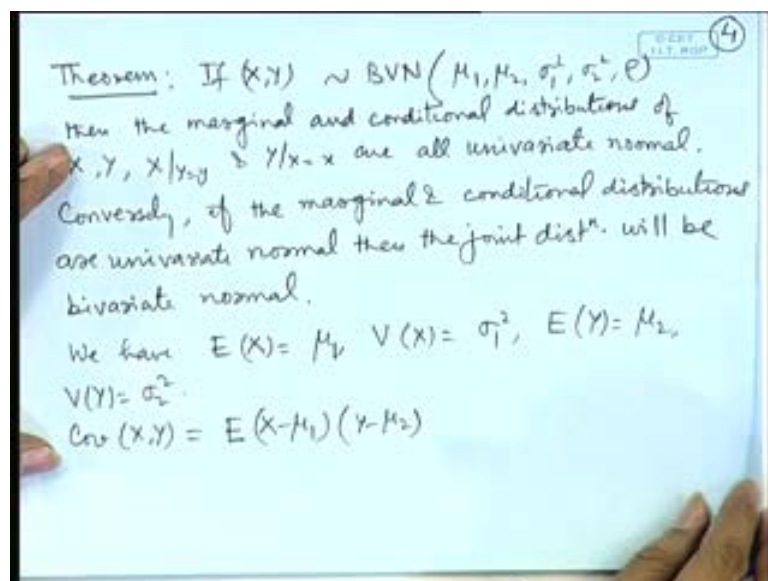 4
Theorem: If (X,Y) ~ BVN(μ₁, μ₂, σ₁², σ₂², ρ)
then the marginal and conditional distributions of
X, Y, X|Y=y & Y|X=x are all univariate normal.
Conversely, if the marginal & conditional distributions
are univariate normal then the joint distⁿ. will be
bivariate normal.
We have E(X) = μ₁, V(X) = σ₁², E(Y) = μ₂,
V(Y) = σ₂².
Cov(X,Y) = E(X-μ₁)(Y-μ₂)